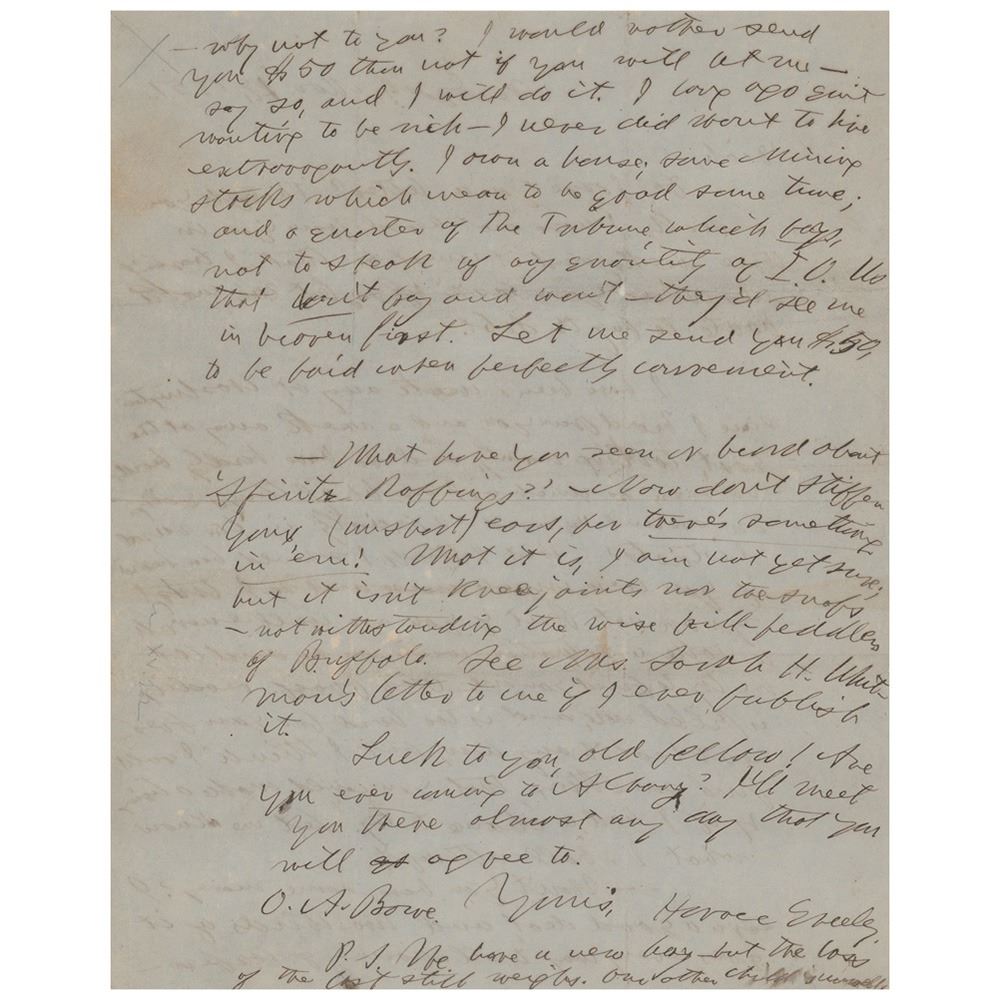 — why not to you? I would rather send
you $50 than not if you will let me —
say so, and I will do it. I long ago quit
wanting to be rich — I never did want to live
extravagantly. I own a house, some Mining
stocks which mean to be good some time;
and a quarter of The Tribune, which pays,
not to speak of any quantity of I.O. Us
that don't pay and won't — they'd see me
in heaven first. Let me send you $50,
to be paid when perfectly convenient.
— What have you seen or heard about
'Spirit Rappings?' — Now don't stiffen
your (unshort) ears, for there's something
in 'em! What it is, I am not yet sure;
but it isn't knee joints nor toe-snaps
— notwithstanding the wise pill-peddlers
of Buffalo. See Mrs. Sarah H. Whit-
man's letter to me if I ever publish
it.
Luck to you, old fellow! Are
you ever coming to Albany? I'll meet
you there almost any day that you
will agree to.
Yours,
O. A. Bowe. Horace Greeley.
P. S. We have a new boy — but the loss
of the last still weighs. One other child